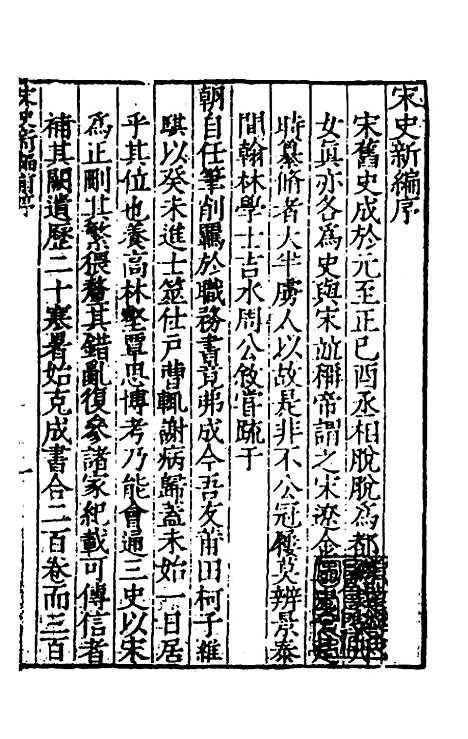 宋史新編序
宋舊史成於元至正己酉丞相脫脫為都
女眞亦各為史與宋並稱帝謂之宋遼金
時纂脩者大半虜人以故是非不公冠屨莫辨景泰
間翰林學士吉水周公敘嘗疏于
朝自任筆削羈於職務書竟弗成今吾友莆田柯子維
騏以癸未進士筮仕戶曹輒謝病歸蓋未始一日居
乎其位也養高林壑覃思博考乃能會通三史以宋
為正刪其繁猥釐其錯亂復參諸家紀載可傳信者
補其闕遺歷二十寒暑始克成書合二百卷而三百
宋史新編前序
一